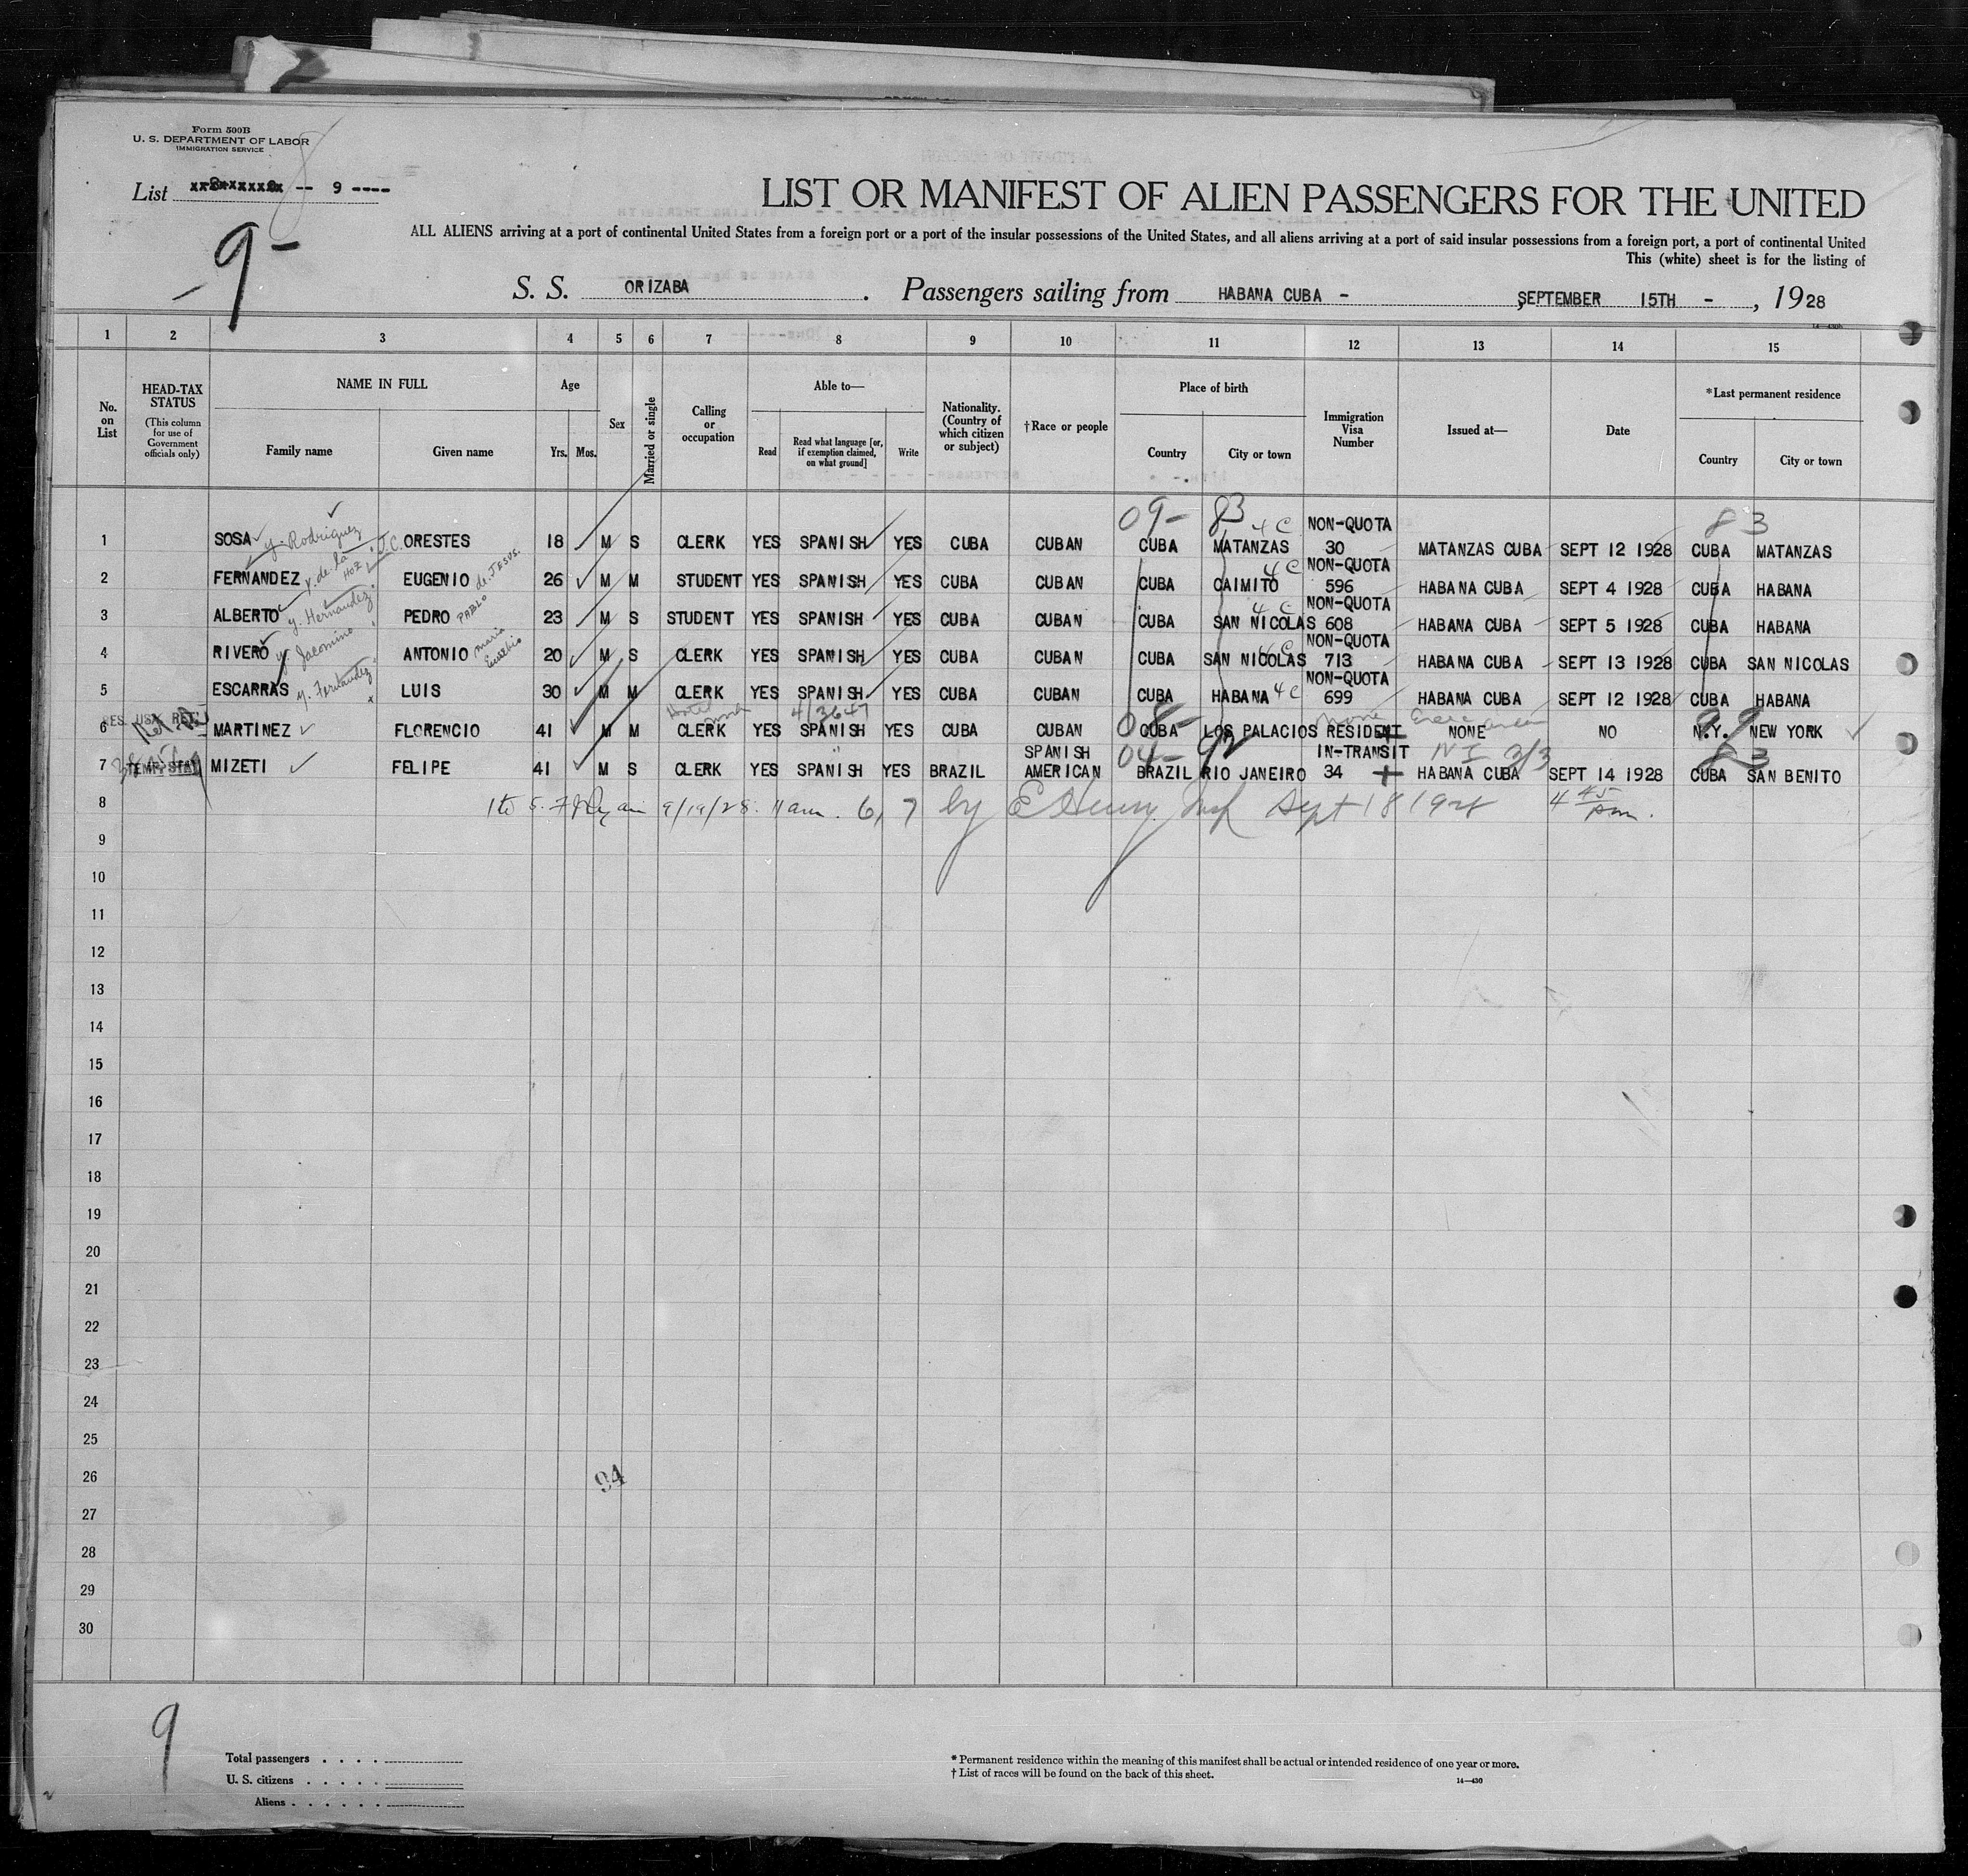 Form 500B
U. S. DEPARTMENT OF LABOR
IMMIGRATION SERVICE
List -- 9 ----
9-
LIST OR MANIFEST OF ALIEN PASSENGERS FOR THE UNITED
ALL ALIENS arriving at a port of continental United States from a foreign port or a port of the insular possessions of the United States, and all aliens arriving at a port of said insular possessions from a foreign port, a port of continental United
This (white) sheet is for the listing of
S. S. ORIZABA . Passengers sailing from HABANA CUBA - SEPTEMBER 15TH - , 1928
1 2 3 4 5 6 7 8 9 10 11 12 13 14 15
No. on List
HEAD-TAX STATUS (This column for use of Government officials only)
NAME IN FULL Family name Given name
Age Yrs. Mos.
Sex
Married or single
Calling or occupation
Able to— Read Read what language [or, if exemption claimed, on what ground] Write
Nationality. (Country of which citizen or subject)
†Race or people
Place of birth Country City or town
Immigration Visa Number
Issued at—
Date
*Last permanent residence Country City or town
09- 83 4C NON-QUOTA 83
1 SOSA y. Rodriguez ORESTES 18 M S CLERK YES SPANISH YES CUBA CUBAN CUBA MATANZAS 30 MATANZAS CUBA SEPT 12 1928 CUBA MATANZAS
4C NON-QUOTA
2 FERNANDEZ y. de la HOZ J.C. EUGENIO de JESUS. 26 M M STUDENT YES SPANISH YES CUBA CUBAN CUBA CAIMITO 596 HABANA CUBA SEPT 4 1928 CUBA HABANA
4C NON-QUOTA
3 ALBERTO y. Hernandez PEDRO PABLO 23 M S STUDENT YES SPANISH YES CUBA CUBAN CUBA SAN NICOLAS 608 HABANA CUBA SEPT 5 1928 CUBA HABANA
4C NON-QUOTA
4 RIVERO y. Jacomino ANTONIO maria Eusebio 20 M S CLERK YES SPANISH YES CUBA CUBAN CUBA SAN NICOLAS 713 HABANA CUBA SEPT 13 1928 CUBA SAN NICOLAS
NON-QUOTA
5 ESCARRAS y. Fernandez LUIS 30 M M CLERK YES SPANISH YES CUBA CUBAN CUBA HABANA 4C 699 HABANA CUBA SEPT 12 1928 CUBA HABANA
RES. USA RET. Hotel work 413647 08- none 99
6 MARTINEZ FLORENCIO 41 M M CLERK YES SPANISH YES CUBA CUBAN CUBA LOS PALACIOS RESIDENT NONE NO N.Y. NEW YORK
SPANISH 04- 92 IN-TRANSIT 83
7 TEMP. STAY MIZETI FELIPE 41 M S CLERK YES SPANISH YES BRAZIL AMERICAN BRAZIL RIO JANEIRO 34 HABANA CUBA SEPT 14 1928 CUBA SAN BENITO
8 1 to 5. F J Ryan 9/19/28. 11 am. 6, 7 by E Henry Insp Sept 18 1928 4 45 pm.
9
10
11
12
13
14
15
16
17
18
19
20
21
22
23
24
25
26
94
27
28
29
30
9
Total passengers . . . .
U. S. citizens . . . . .
Aliens . . . . . .
* Permanent residence within the meaning of this manifest shall be actual or intended residence of one year or more.
† List of races will be found on the back of this sheet.
14—430